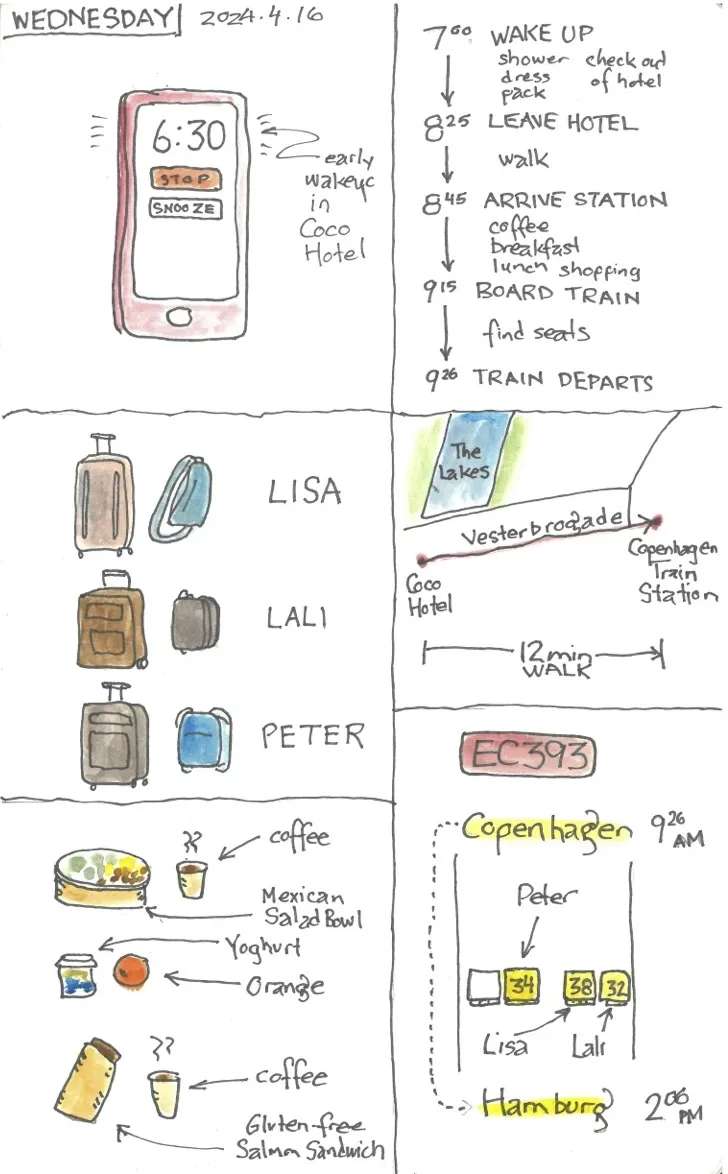 WEDNESDAY 2024.4.16
6:30
STOP
SNOOZE
early
wakeup
in
Coco
Hotel
7⁰⁰ WAKE UP
shower check out
dress of hotel
pack
8²⁵ LEAVE HOTEL
walk
8⁴⁵ ARRIVE STATION
coffee
breakfast
lunch shopping
9¹⁵ BOARD TRAIN
find seats
9²⁶ TRAIN DEPARTS
LISA
LALI
PETER
The
Lakes
Vesterbrogade
Coco
Hotel
Copenhagen
Train
Station
12 min
WALK
coffee
Mexican
Salad Bowl
Yoghurt
Orange
coffee
Gluten-free
Salmon Sandwich
EC393
Copenhagen 9²⁶ AM
Peter
34 38 32
Lisa Lali
Hamburg 2⁰⁶ PM